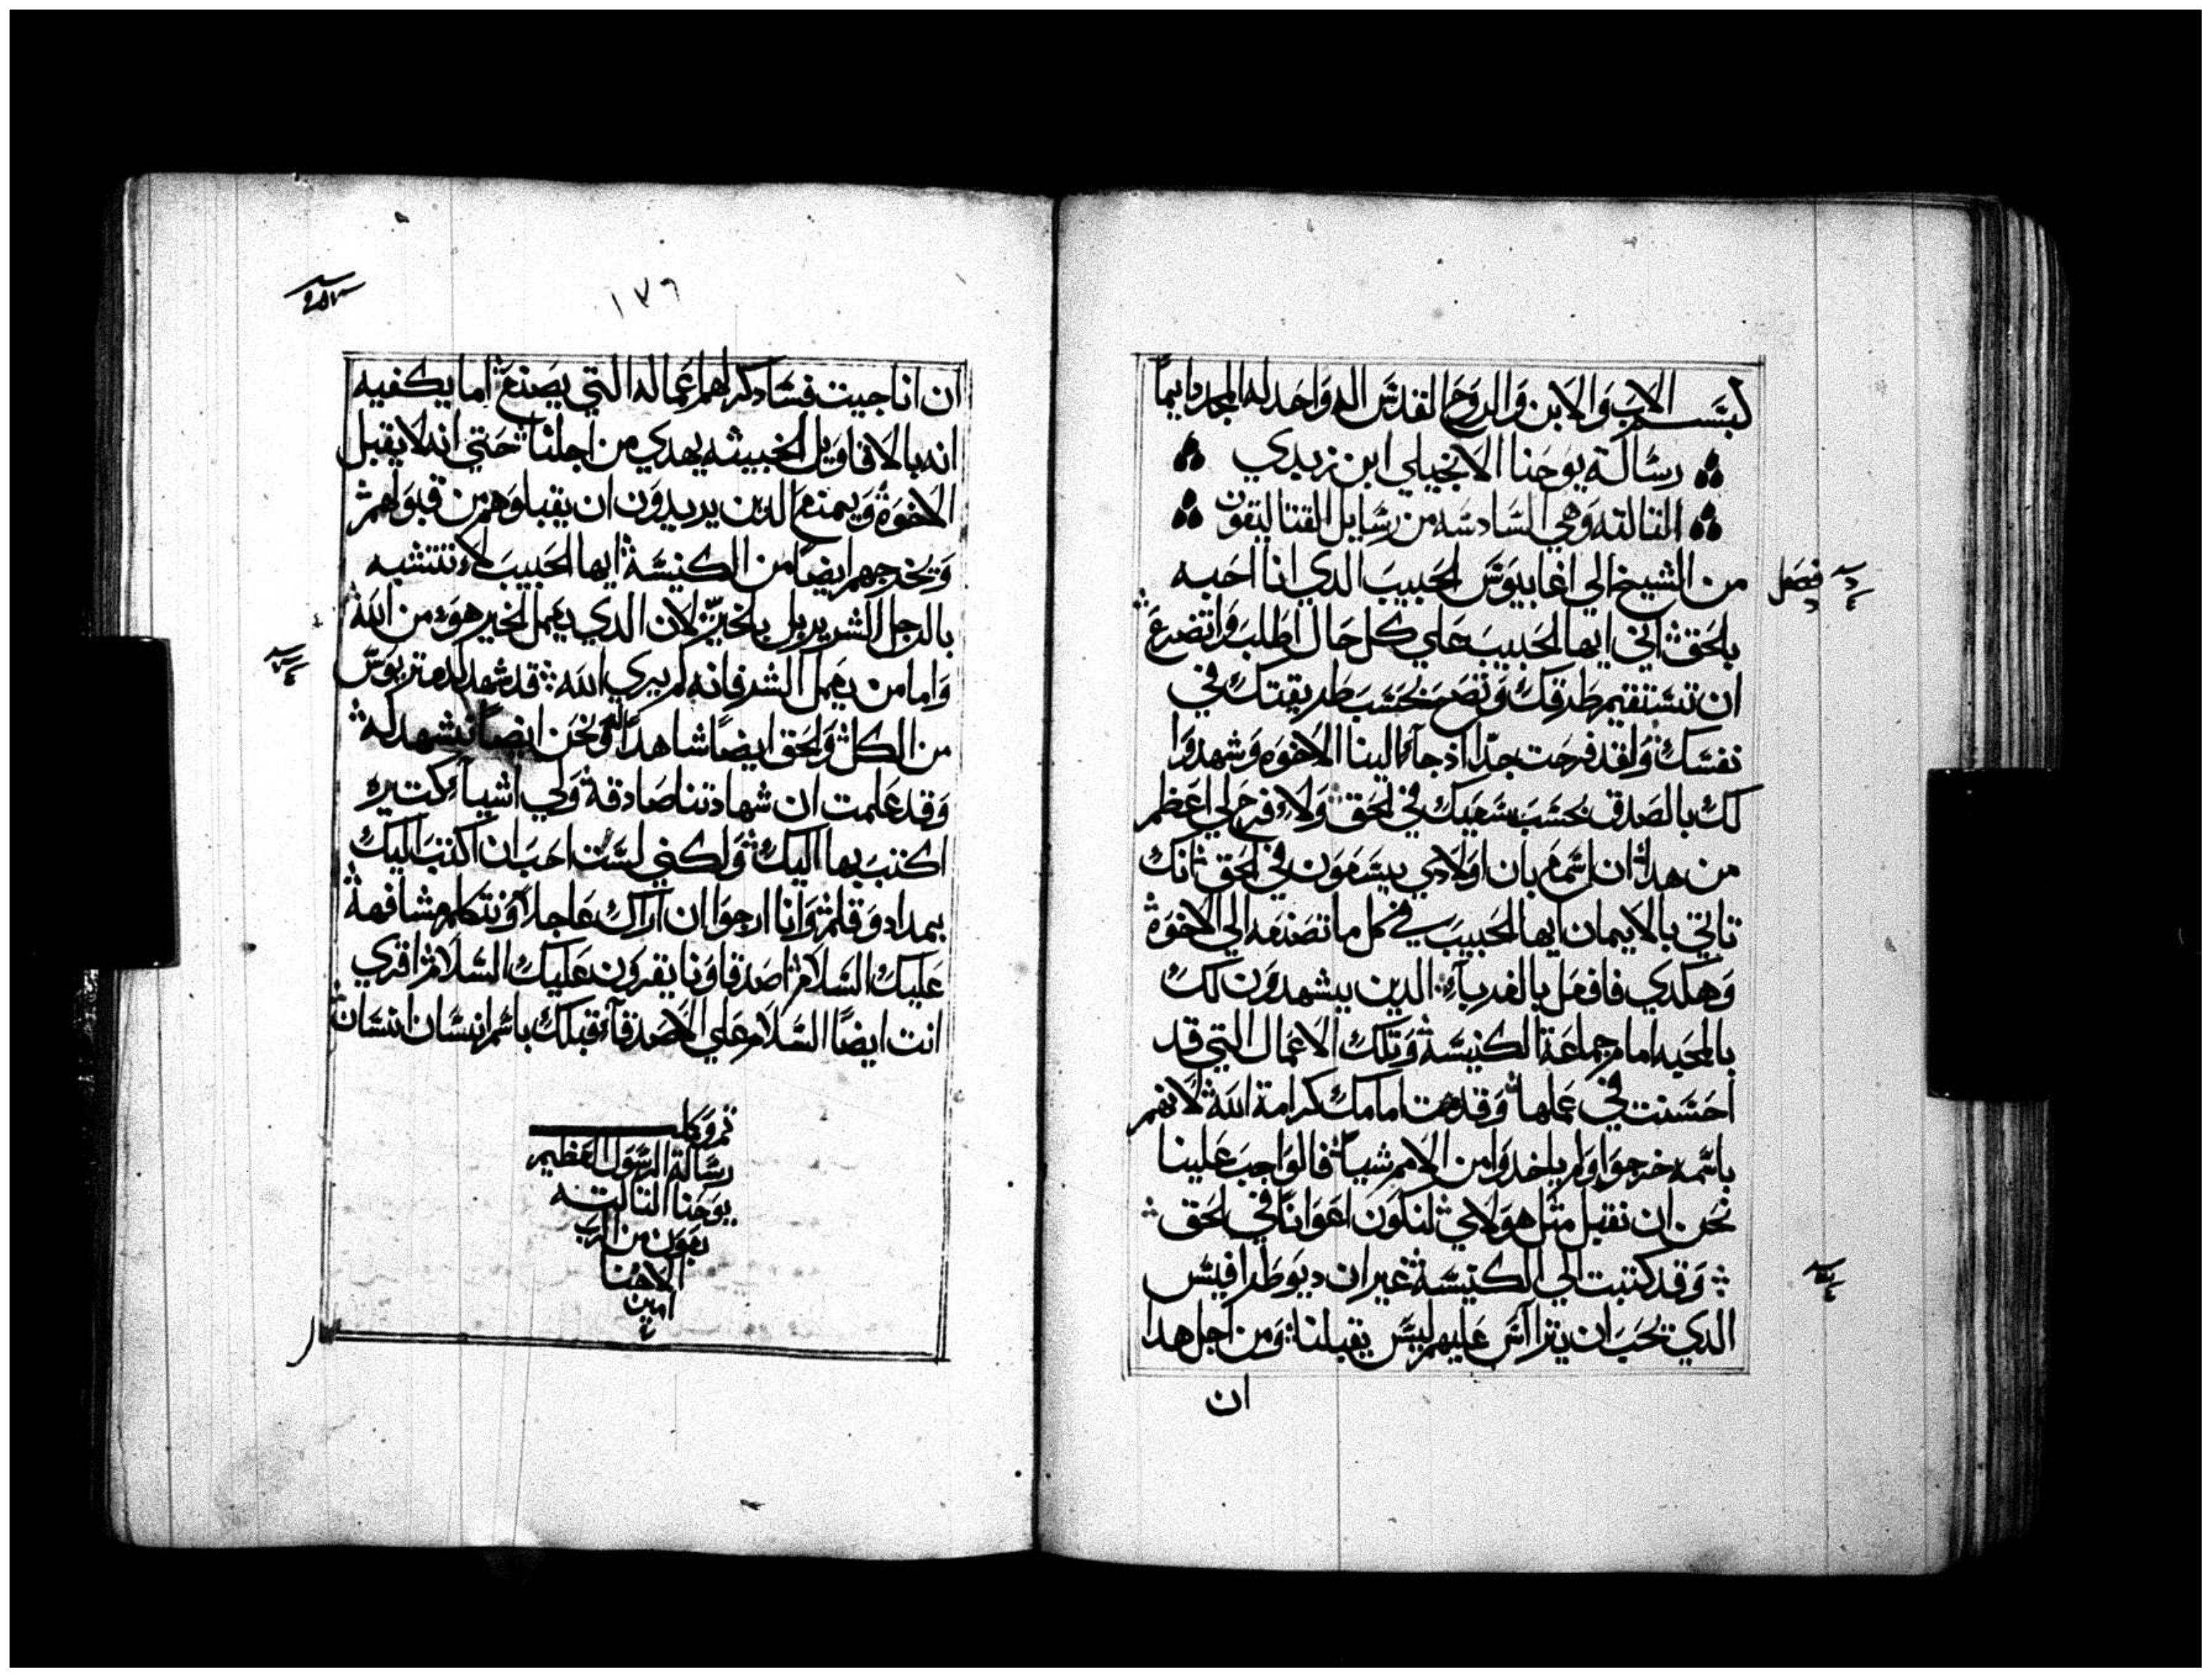 بسم الاب والابن والروح القدس اله واحد له المجد دايماً
رسالة يوحنا الانجيلي ابن زبدي
التالته وهي السادسه من رسايل القتاليقون
فصل
من الشيخ الي اغايوس الحبيب الدي انا احبه
بالحق اني ايها الحبيب علي كل حال اطلب واتضرع
ان تستقيم طرقك وتصح بحسب طريقتك في
نفسك ولقد فرحت جداً اذ جآنا الينا الاخوه وشهدوا
لك بالصدق بحسب سعيك في الحق ولا فرح لي اعظم
من هدا ان اسمع بان اولادي يسعون في الحق انك
تاتي بالايمان ايها الحبيب في كل ما تصنعه الي الاخوة
وهكدي فافعل بالغربآء الدين يشهدون لك
بالمحبه امام جماعة الكنيسة وتلك الاعمال التي قد
احسنت في عملها وقدمت امامك كرامة الله لانهم
باسمه خرجوا ولم ياخدوا من الامم شياً فالواجب علينا
نحن ان نقبل متل هولاي لنكون اعواناً في الحق
وقد كتبت الي الكنيسة غير ان ديوطرافيس
الدي يحب ان يتراآس عليهم ليس يقبلنا ومن اجل هدا
ان
١٧٦
ان انا جيت فسادكر لهم اعماله التي يصنع اما يكفيه
انه بالاقاويل الخبيثه يهدي من اجلنا حتي انه لا يقبل
الاخوة ويمنع الدين يريدون ان يقبلوهم من قبولهم
ويخرجهم ايضاً من الكنيسة ايها الحبيب لا تتشبه
بالرجل الشرير بل بالخيرّ لان الدي يعمل الخير هو من الله
واما من يعمل الشر فانه لم يري الله قد شهد لديمتريوس
من الكل والحق ايضاً شاهداً له ونحن ايضاً نشهد له
وقد علمت ان شهادتنا صادقة ولي اشيآء كتيره
اكتب بها اليك ولكني لست احب ان اكتب اليك
بمداد وقلم وانا ارجوا ان اراك عاجلا ونتكلم مشافهة
عليك السلام اصدقاونا يقرون عليك السلام اقري
انت ايضاً السلام علي الاصدقآء قبلك باسم انسان انسان
تم وكمل
رسالة الرسول العظيم
يوحنا التالته
بعون من الرب
الاهنا
امين